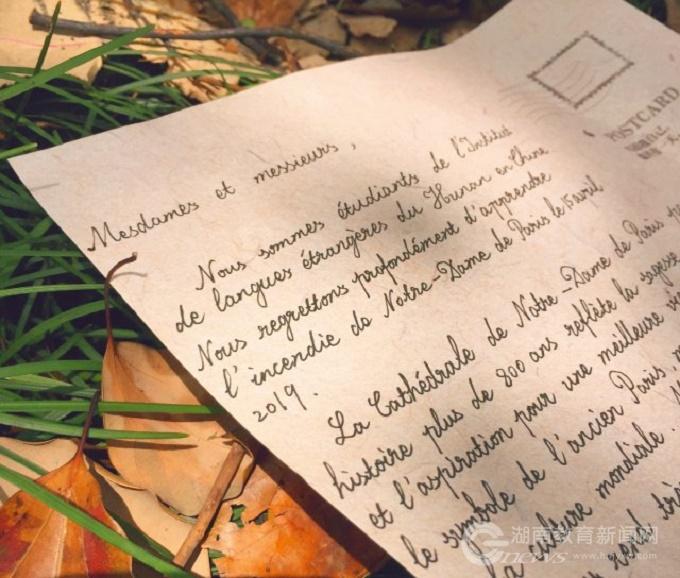 POSTCARD
Mesdames et messieurs,
Nous sommes étudiants de l'Institut
de langues étrangères du Hunan en Chine
Nous regrettons profondément d'apprendre
l'incendie de Notre-Dame de Paris le 15 avril
2019.
La Cathédrale de Notre-Dame de Paris
histoire plus de 800 ans reflète la sagesse
et l'aspiration pour une meilleure
le symbole de l'ancien Paris,
la culture mondiale.
湖南教育新闻网
news